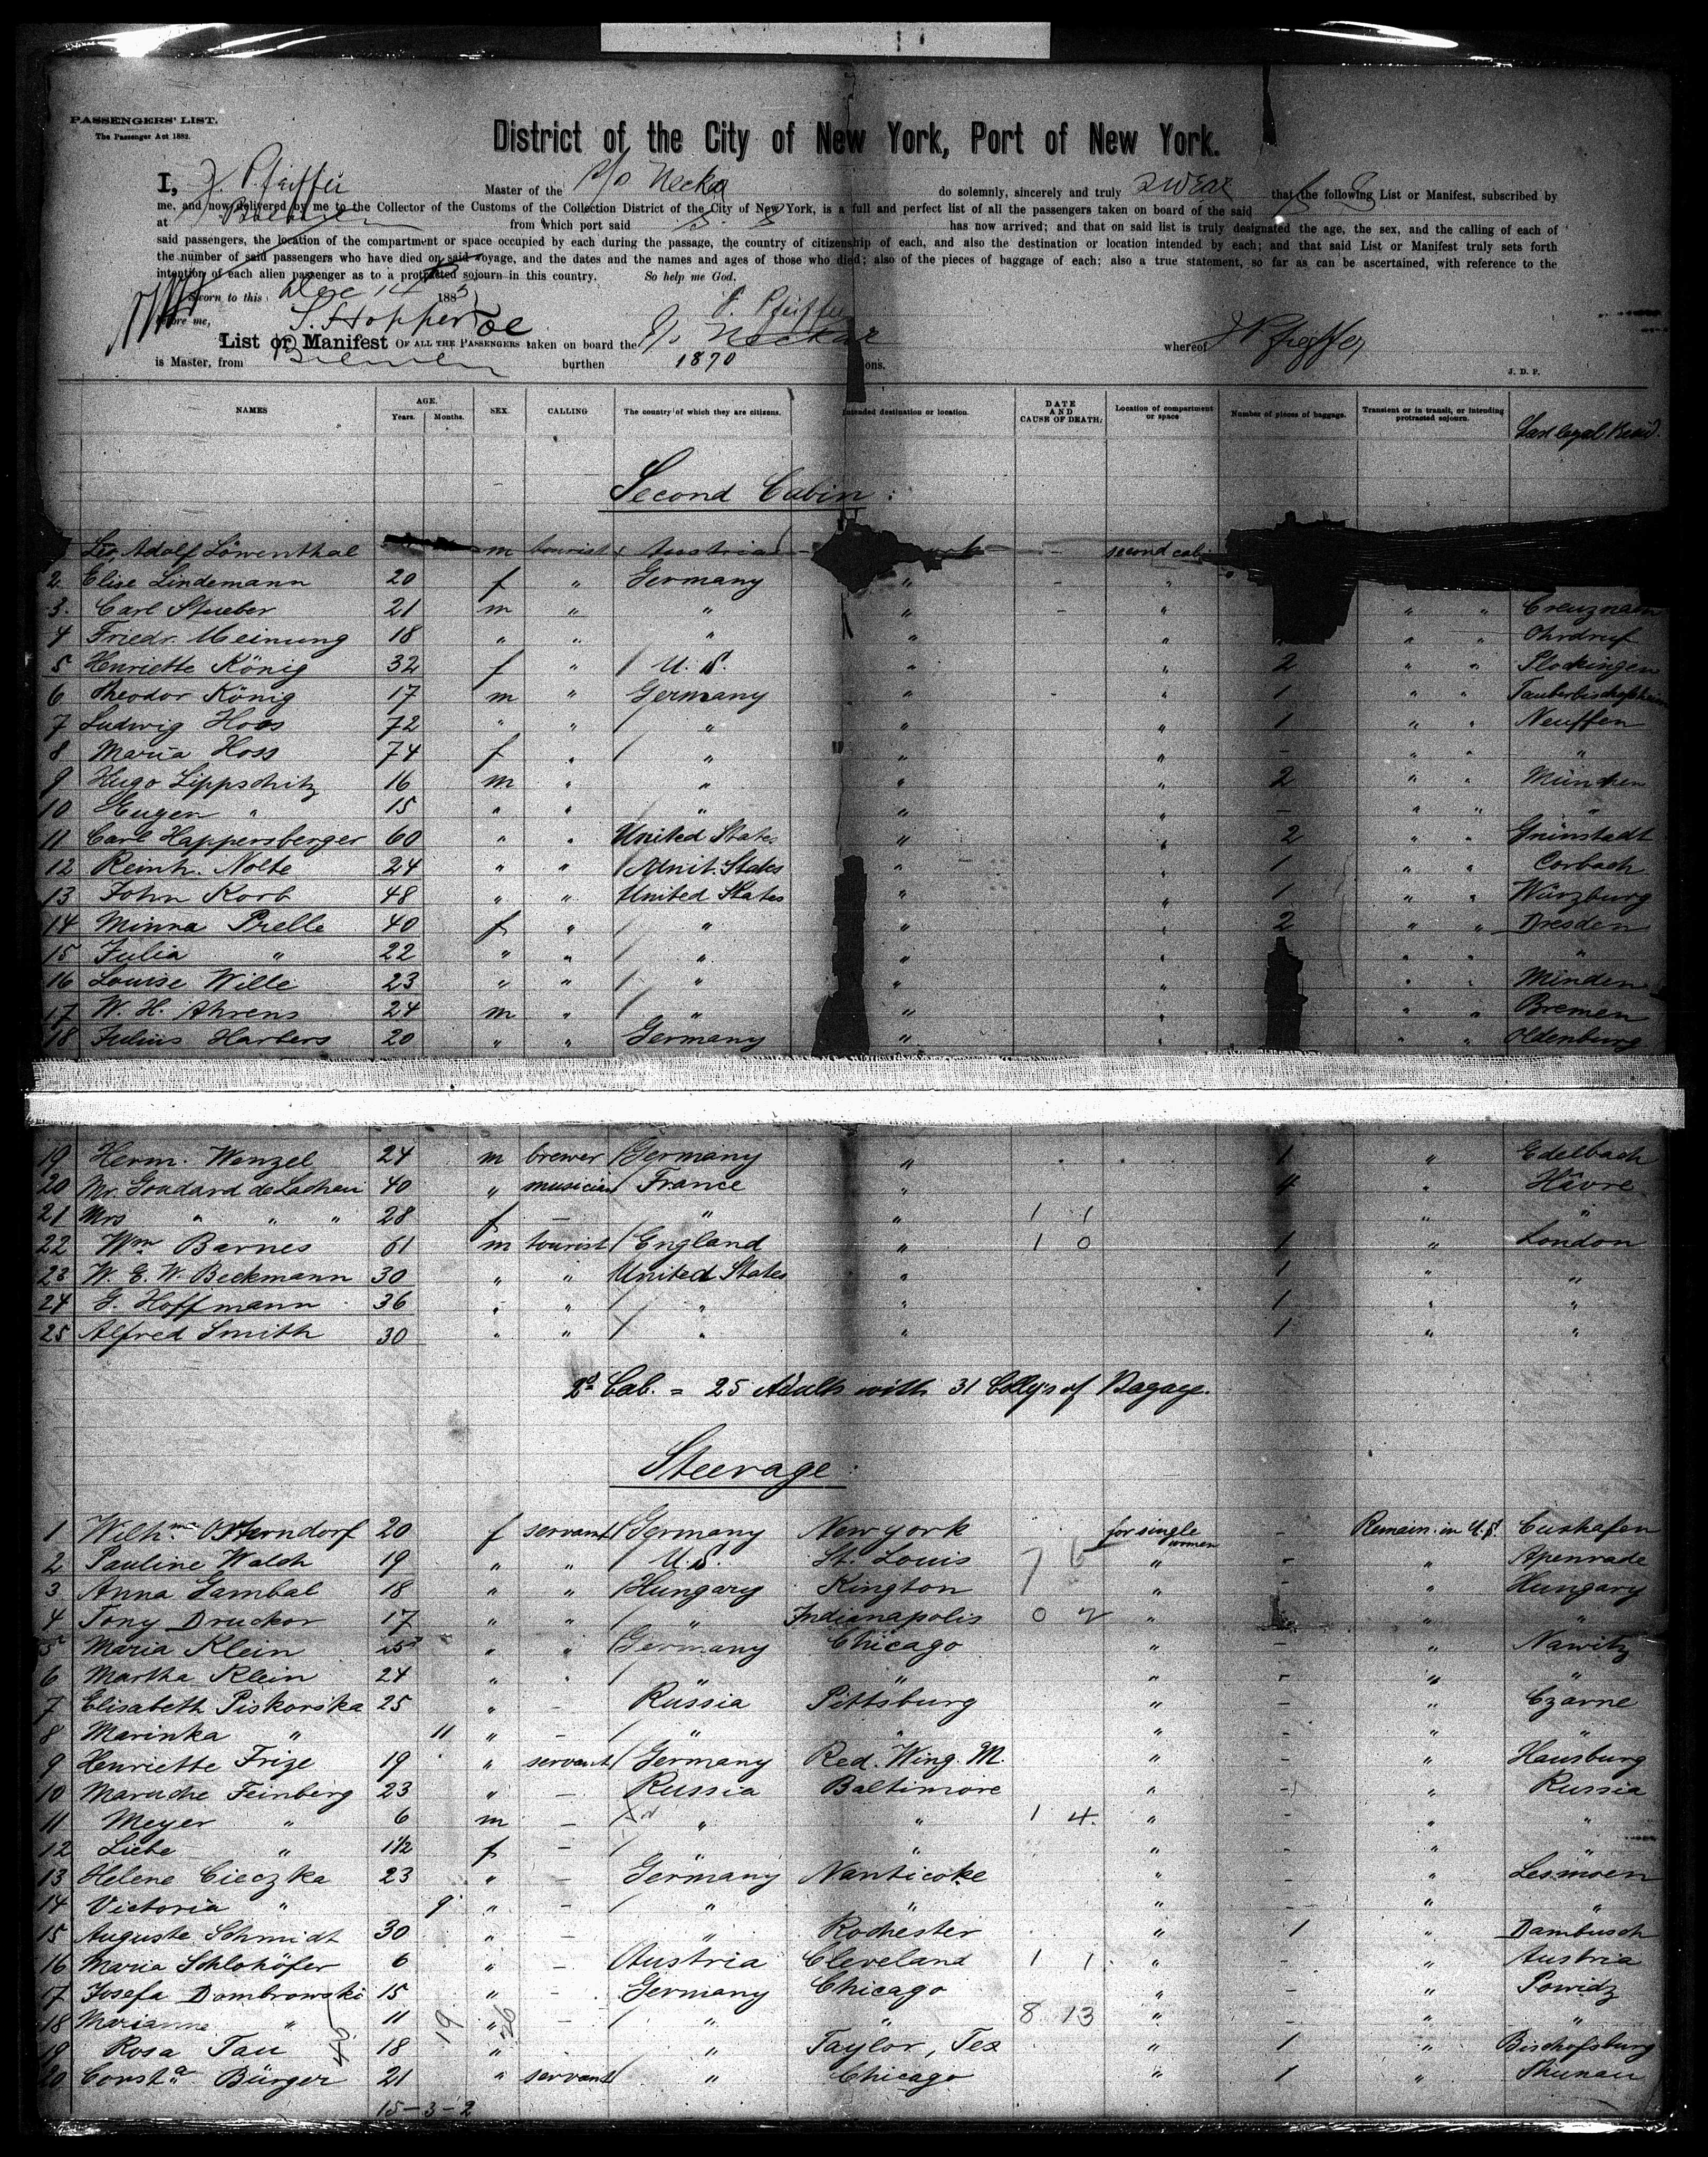 PASSENGERS' LIST.
The Passenger Act 1882.
District of the City of New York, Port of New York.
I, J. Pfeiffer Master of the S/S Neckar do solemnly, sincerely and truly swear that the following List or Manifest, subscribed by
me, and now delivered by me to the Collector of the Customs of the Collection District of the City of New York, is a full and perfect list of all the passengers taken on board of the said S S
at Bremen from which port said S. S has now arrived; and that on said list is truly designated the age, the sex, and the calling of each of
said passengers, the location of the compartment or space occupied by each during the passage, the country of citizenship of each, and also the destination or location intended by each; and that said List or Manifest truly sets forth
the number of said passengers who have died on said voyage, and the dates and the names and ages of those who died; also of the pieces of baggage of each; also a true statement, so far as can be ascertained, with reference to the
intention of each alien passenger as to a protracted sojourn in this country. So help me God.
Sworn to this Dec 14 188
before me, S. Hopper J. Pfeiffer
List or Manifest OF ALL THE PASSENGERS taken on board the S/s Neckar whereof J Pfeiffer
is Master, from Bremen burthen 1870 tons.
J. D. P.
NAMES AGE. Years. Months. SEX. CALLING The country of which they are citizens. Intended destination or location. DATE AND CAUSE OF DEATH. Location of compartment or space Number of pieces of baggage. Transient or in transit, or intending protracted sojourn. Last legal Resid.
Second Cabin:
Leo Adolf Löwenthal m tourist Austria second cab
2 Elise Lindemann 20 f " Germany " - "
3. Carl Stueber 21 m " " " - " " " Creuznach
4 Friedr. Meinung 18 " " " " " " " Ohrdruf
5 Henriette König 32 f " U. S. " " 2 " " Plochingen
6 Theodor König 17 m " Germany " - " 1 " " Tauberbischofsheim
7 Ludwig Hoss 72 " " " " " 1 " " Neuffen
8 Maria Hoss 74 f " " " " - " " "
9 Hugo Lippschitz 16 m " " " " 2 " " München
10 Eugen " 15 " " " " " - " " "
11 Carl Happersberger 60 " " United States " " 2 " " Grünstadt
12 Reinh. Nolte 24 " " Unit. States " " 1 " " Corbach
13 John Korb 48 " " United States " " 1 " " Würzburg
14 Minna Prelle 40 f " " " " 2 " " Dresden
15 Julia " 22 " " " " " " " "
16 Louise Wille 23 " " " " " " " Minden
17 W. H. Ahrens 24 m " " " " " " Bremen
18 Julius Harbers 20 " " Germany " " " " Oldenburg
19 Herm. Wenzel 24 m brewer Germany " 1 " Edelbach
20 Mr. Goudard de Lachau 40 " musician France " 4 " Hâvre
21 Mrs " " " 28 f - " " 1 1 " "
22 Wm Barnes 61 m tourist England " 1 0 1 " London
23 W. E. W. Beckmann 30 " " United States " 1 " "
24 G. Hoffmann 36 " " " " 1 " "
25 Alfred Smith 30 " " " " 1 " "
2d Cab. = 25 Adults with 31 Colly's of Bagage.
Steerage:
1 Wilhme Osterndorf 20 f servant Germany New york for single women - Remain. in U.S. Cuxhafen
2 Pauline Walch 19 " " U.S. St. Louis 7 6 " - " Apenrade
3 Anna Gambal 18 " " Hungary Kington " - " Hungary
4 Tony Druckor 17 " " " Indianapolis 0 2 " " "
5 Maria Klein " " Germany Chicago " - " Nawitz
6 Martha Klein 24 " " " " " - " "
7 Elisabeth Piskorska 25 " - Russia Pittsburg " - " Czarne
8 Marinka " 11 " - " " " - " "
9 Henriette Frize 19 " servant Germany Red. Wing. M. " - " Hausburg
10 Maruche Feinberg 23 " - Russia Baltimore " - " Russia
11 Meyer " 6 m - " " 1 4. " - " "
12 Liebe " 1½ f - " " " - " "
13 Helene Cieczka 23 " - Germany Nanticoke " - " Lesmoen
14 Victoria " 9 " - " " " - " "
15 Auguste Schmidt 30 " - " Rochester " 1 " Dambusch
16 Maria Schlohöfer 6 " - Austria Cleveland 1 1. " - " Austria
17 Josefa Dombrowski 15 " - Germany Chicago " - " Powidz
18 Marianne " 11 19 " 26 - " " 8 13 " - " "
19 Rosa Tau 18 " " Taylor, Tex " 1 " Bischofsburg
20 Consta Bürger 21 " servant " Chicago " 1 " Thunau
15-3-2